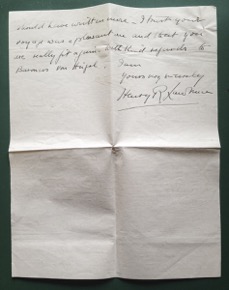 should have written more – I trust your
voyage was a pleasant one and that you
are really fit again with kind regards to
I am
Yours very sincerely
Henry R